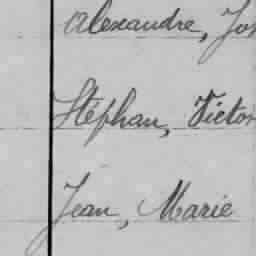 Alexandre, Jos
Stéphan, Victor
Jean, Marie